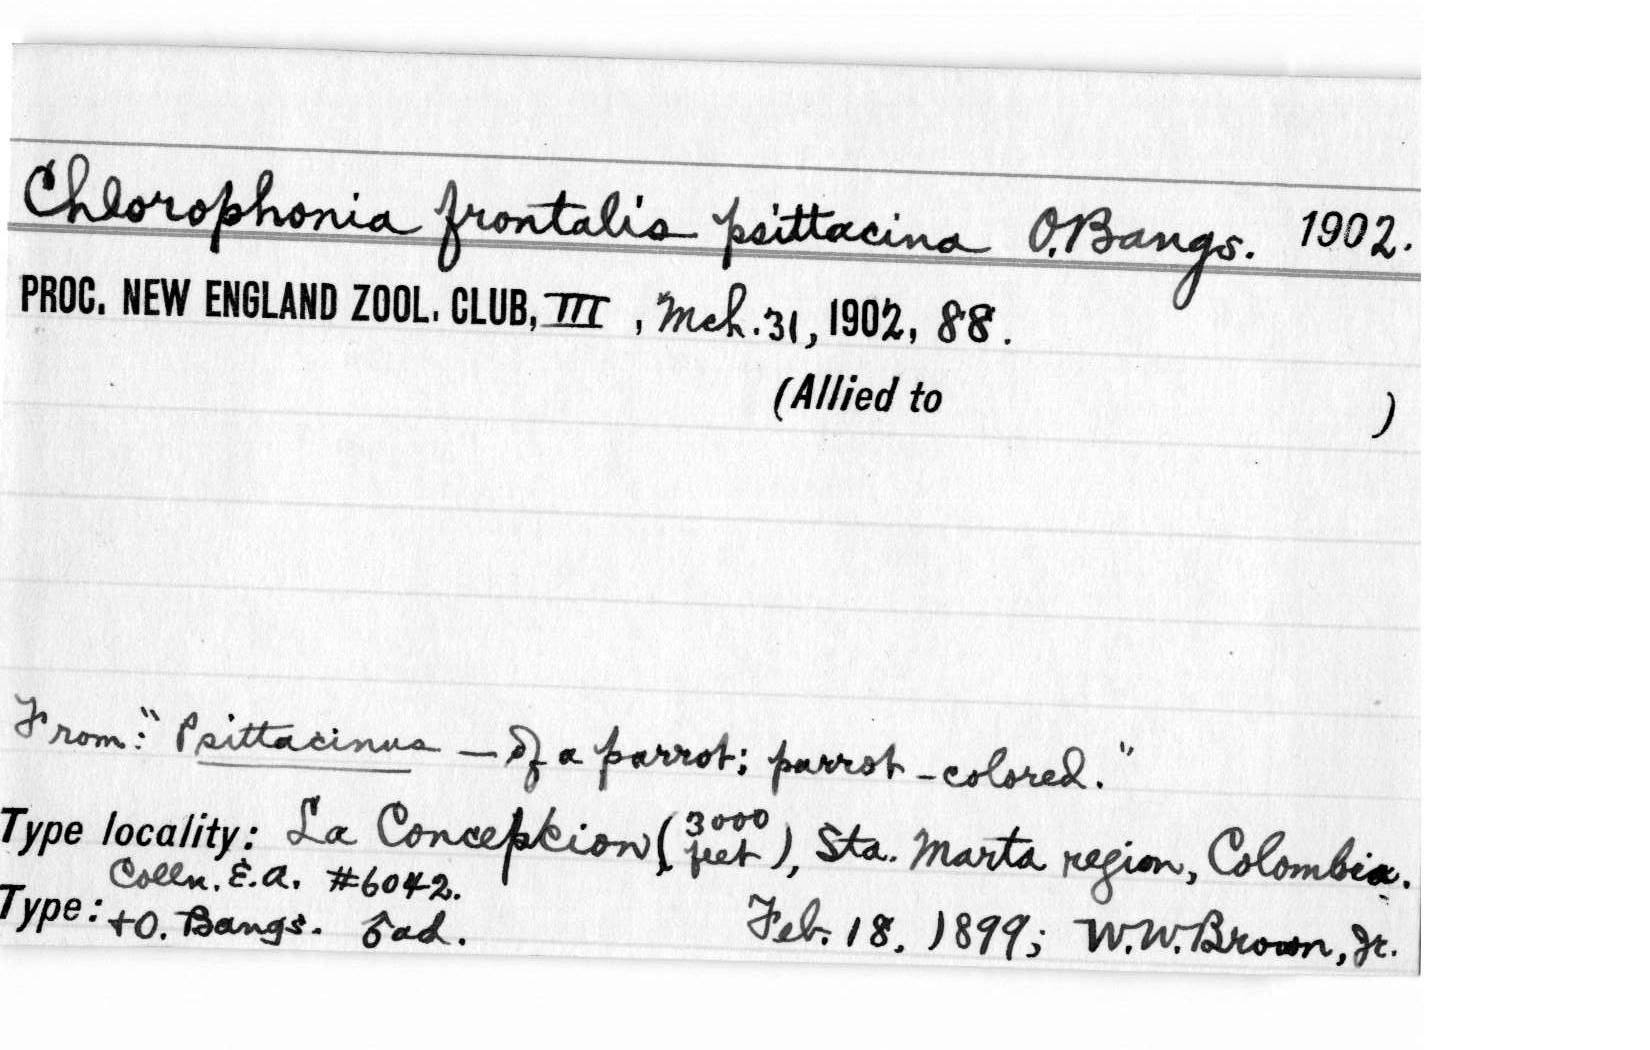 Chlorophonia frontalis psittacina O. Bangs. 1902.
PROC. NEW ENGLAND ZOOL. CLUB, III, Mch. 31, 1902, 88.
(Allied to )
From: "Psittacinus — of a parrot; parrot-colored."
Type locality: La Concepcion (3000 feet), Sta. Marta region, Colombia.
Colln. E.A. #6042.
Type: +O. Bangs. ♂ ad. Feb. 18, 1899; W.W. Brown, Jr.